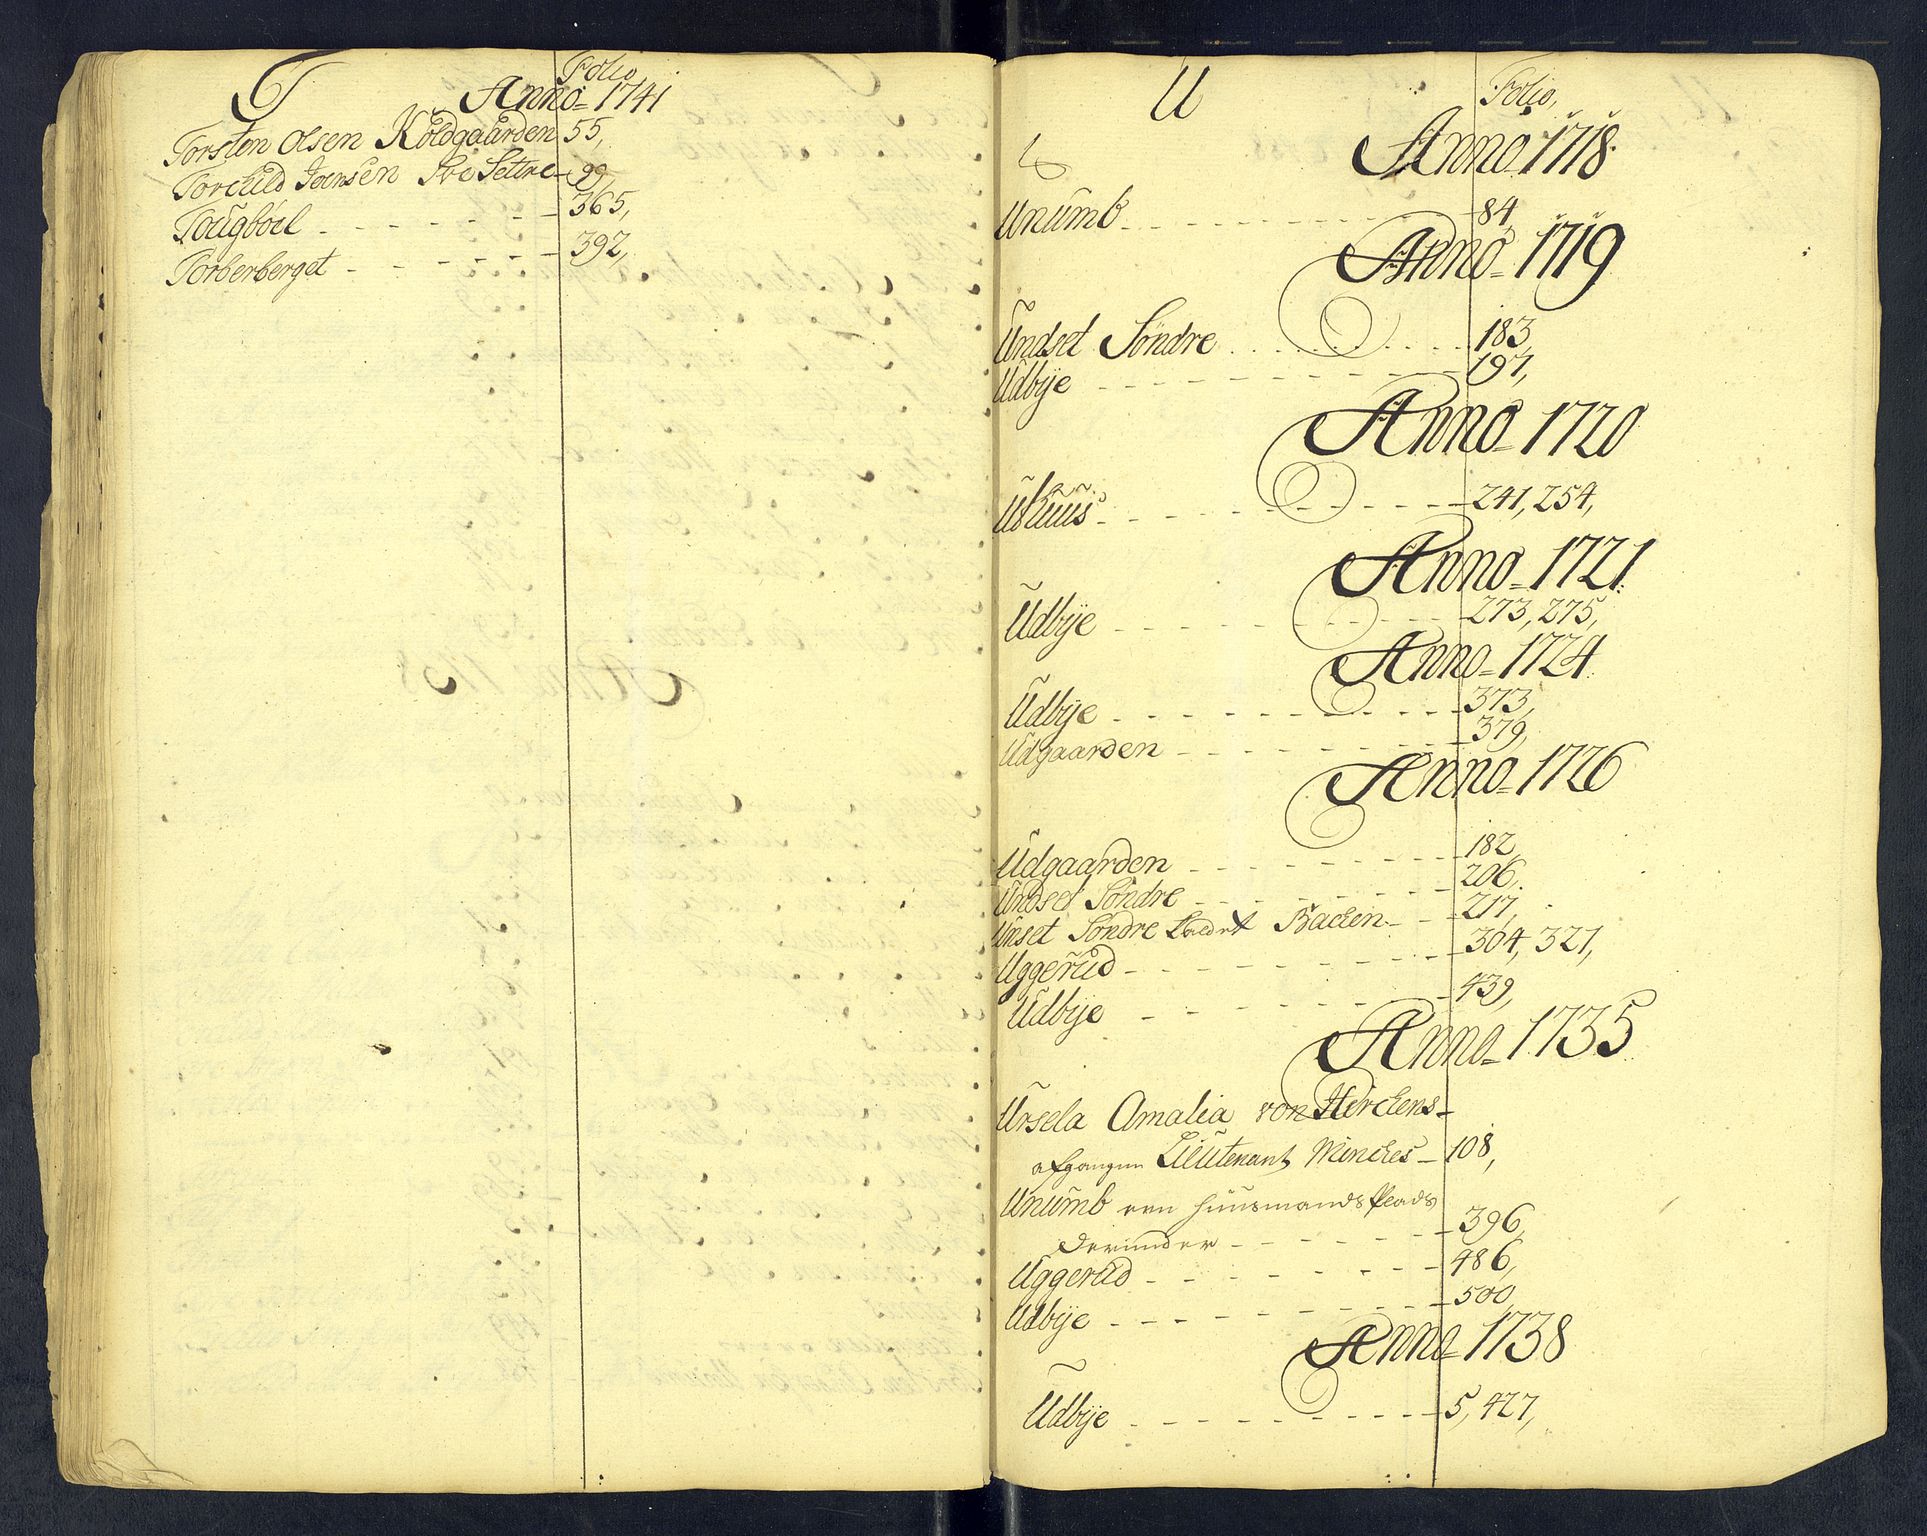 T Folio
Anno 1741
Torsten Olsen Koldgaarden 55,
Torchild Joensen Stoe Settre 99,
Tougböel 365,
Torberberget 392,
U Folio,
Anno 1718
Unumb 84,
Anno 1719
Undset Söndre 183,
Udbÿe 197,
Anno 1720
Ushuus 241, 254,
Anno 1721
Udbÿe 273, 275,
Anno 1724
Udbÿe 373,
Udgaarden 379,
Anno 1726
Udgaarden 182,
Undset Söndre 206,
Unset Söndre kaldet Backen 217,
Uggerud 304, 321,
Udbÿe 439,
Anno 1735
Ursela Amalia von Herckens
afgangne Lieutenant Minckes 108,
Unumb een huusmands Plads
derunder 396,
Uggerud 486,
Udbÿe 500,
Anno 1738
Udbÿe 5, 427,